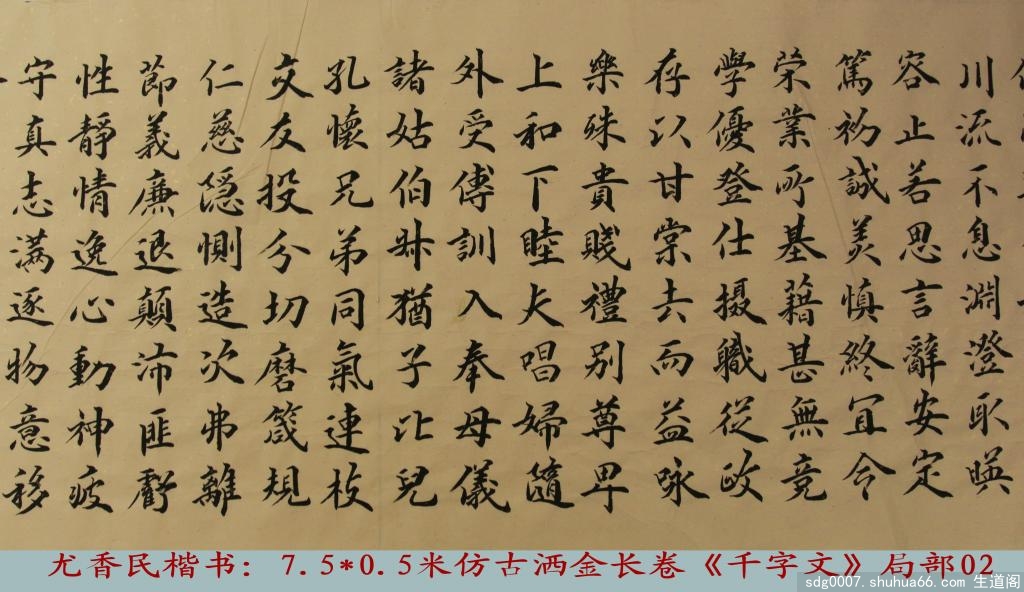 川流不息淵澄取暎
容止若思言辭安定
篤初誠美慎終宜令
榮業所基藉甚無竟
學優登仕攝職從政
存以甘棠去而益咏
樂殊貴賤禮別尊卑
上和下睦夫唱婦隨
外受傅訓入奉母儀
諸姑伯叔猶子比兒
孔懷兄弟同氣連枝
交友投分切磨箴規
仁慈隱惻造次弗離
節義廉退顛沛匪虧
性靜情逸心動神疲
守真志滿逐物意移
尤香民楷书：7.5*0.5米仿古洒金长卷《千字文》局部02
sdg0007.shuhua66.com 生道阁